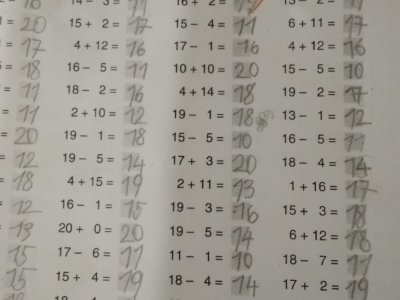 14 - 3 = 11 16 + 2 = 13 - 2 = 11
20 15 + 2 = 17 15 - 4 = 11 6 + 11 = 17
= 17 4 + 12 = 16 17 - 1 = 16 4 + 12 = 16
= 18 16 - 5 = 11 10 + 10 = 20 15 - 5 = 10
= 11 18 - 2 = 16 4 + 14 = 18 19 - 2 = 17
= 11 2 + 10 = 12 19 - 1 = 18 13 - 1 = 12
= 20 19 - 1 = 18 15 - 5 = 10 16 - 5 = 11
= 12 19 - 5 = 14 17 + 3 = 20 18 - 4 = 14
= 18 4 + 15 = 19 2 + 11 = 13 1 + 16 = 17
= 12 16 - 1 = 15 19 - 3 = 16 15 + 3 = 18
= 20 + 0 = 20 19 - 5 = 14 6 + 12 = 18
15 17 - 6 = 11 11 - 1 = 10 18 - 7 = 11
15 15 + 4 = 19 18 - 4 = 14 17 + 2 = 19